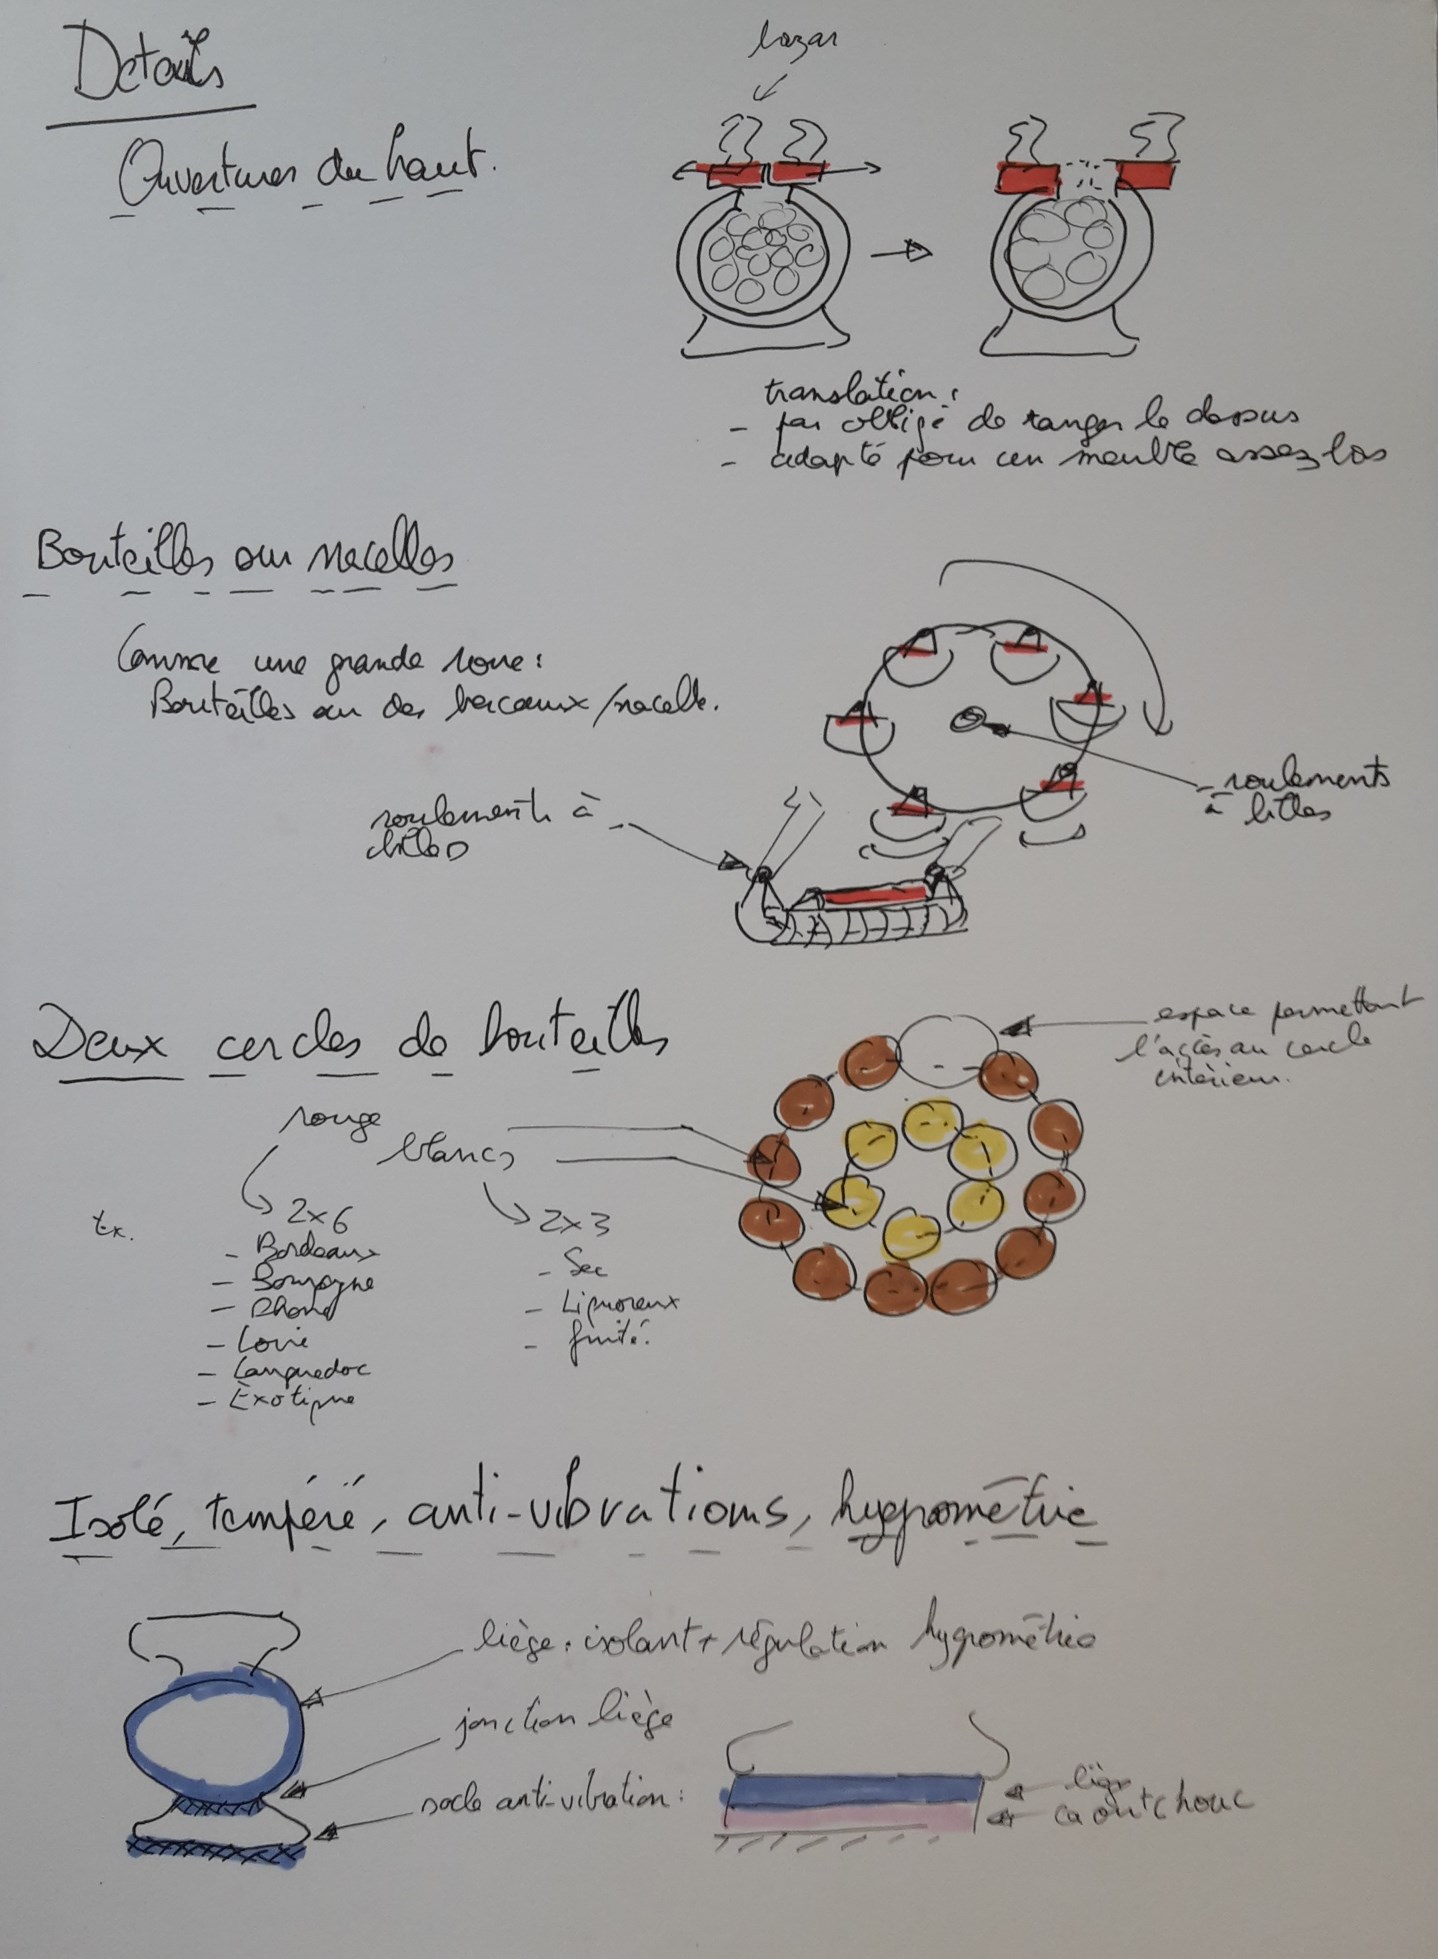 Details
bazar
Ouvertures du haut.
translation :
- pas obligé de ranger le dessus
- adapté pour un meuble assez bas
Bouteilles sur nacelles
Comme une grande roue :
Bouteilles sur des berceaux/nacelle.
roulements à billes
roulements à billes
Deux cercles de bouteilles
espace permettant
l'accès au cercle
intérieur.
rouge
blancs
Ex.
2x6
- Bordeaux
- Bourgogne
- Rhone
- Loire
- Languedoc
- Exotique
2x3
- Sec
- Liquoreux
- fruité.
Isolé, tempéré, anti-vibrations, hygrométrie
liège : isolant + régulation hygrométrie
jonction liège
socle anti-vibration :
liège
caoutchouc